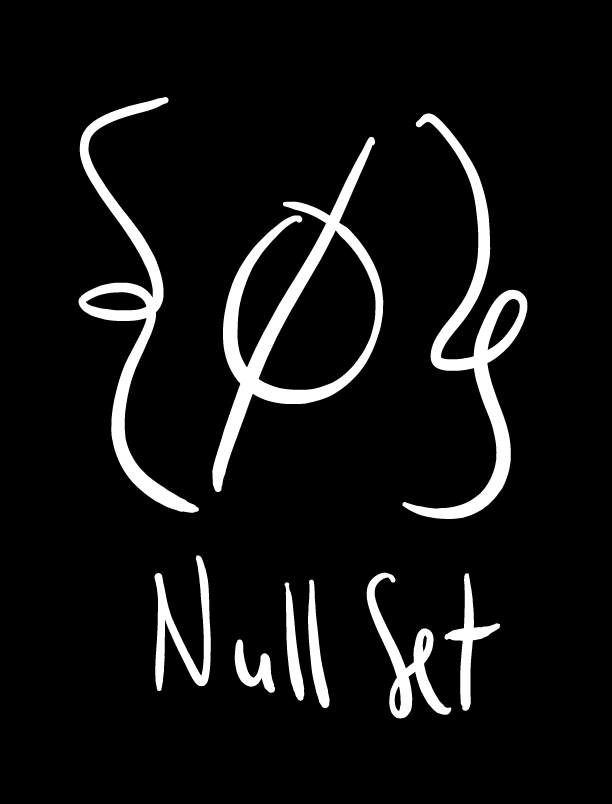 {∅}
Null Set